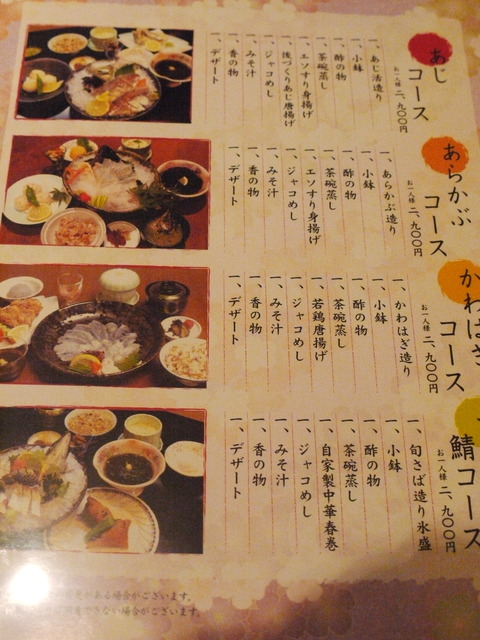 あじ
コース
お一人様 二、九〇〇円
一、あじ活造り
一、小鉢
一、酢の物
一、茶碗蒸し
一、エソすり身揚げ
一、後づくりあじ唐揚げ
一、ジャコめし
一、みそ汁
一、香の物
一、デザート
あらかぶ
コース
お一人様 二、九〇〇円
一、あらかぶ造り
一、小鉢
一、酢の物
一、茶碗蒸し
一、エソすり身揚げ
一、ジャコめし
一、みそ汁
一、香の物
一、デザート
かわはぎ
コース
お一人様 二、九〇〇円
一、かわはぎ造り
一、小鉢
一、酢の物
一、茶碗蒸し
一、若鶏唐揚げ
一、ジャコめし
一、みそ汁
一、香の物
一、デザート
鯖コース
お一人様 二、九〇〇円
一、旬さば造り氷盛
一、小鉢
一、酢の物
一、茶碗蒸し
一、自家製中華春巻
一、ジャコめし
一、みそ汁
一、香の物
一、デザート
がある場合がございます。
できない場合がございます。